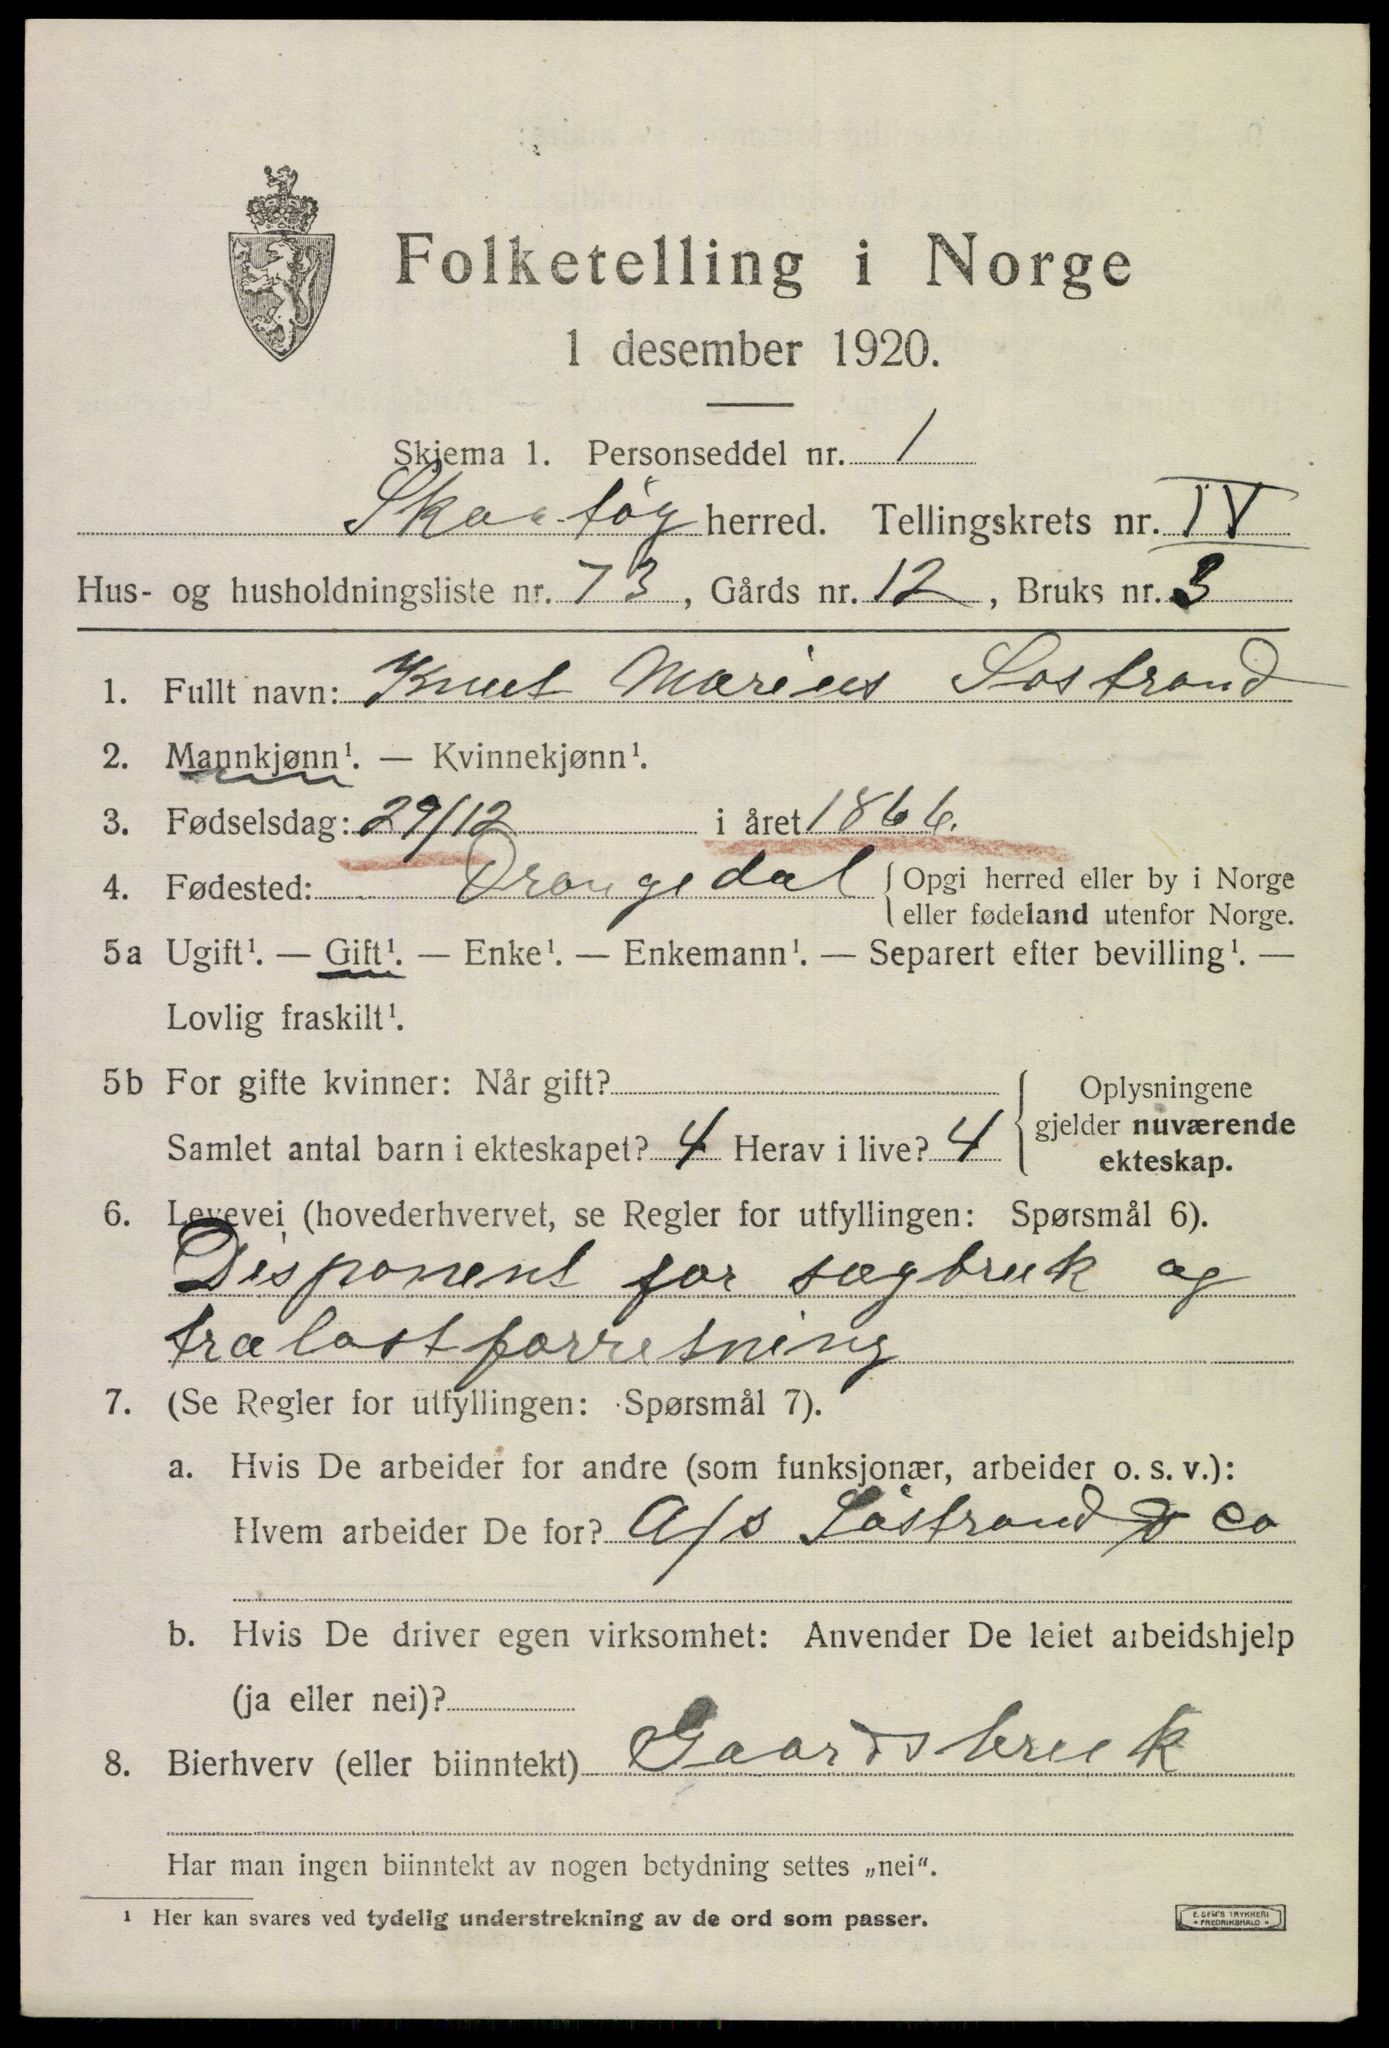 Folketelling i Norge
1 desember 1920.
Skjema 1. Personseddel nr. 1
Skaatøy herred. Tellingskrets nr. IV
Hus- og husholdningsliste nr. 73, Gårds nr. 12, Bruks nr. 3
1. Fullt navn: Knut Marius Søstrand
2. Mannkjønn¹. — Kvinnekjønn¹.
3. Fødselsdag: 29/12 i året 1866.
4. Fødested: Drangedal { Opgi herred eller by i Norge
eller fødeland utenfor Norge.
5a Ugift¹. — Gift¹. — Enke¹. — Enkemann¹. — Separert efter bevilling¹. —
Lovlig fraskilt¹.
5b For gifte kvinner: Når gift?
Samlet antal barn i ekteskapet? 4 Herav i live? 4
Oplysningene
gjelder nuværende
ekteskap.
6. Levevei (hovederhvervet, se Regler for utfyllingen: Spørsmål 6).
Disponent for sagbruk og
trælastforretning
7. (Se Regler for utfyllingen: Spørsmål 7).
a. Hvis De arbeider for andre (som funksjonær, arbeider o. s. v.):
Hvem arbeider De for? A/s Søstrand & Co
b. Hvis De driver egen virksomhet: Anvender De leiet arbeidshjelp
(ja eller nei)?
8. Bierhverv (eller biinntekt) Gaardsbruk
Har man ingen biinntekt av nogen betydning settes „nei“.
¹ Her kan svares ved tydelig understrekning av de ord som passer.
E. SEM'S TRYKKERI
FREDRIKSHALD